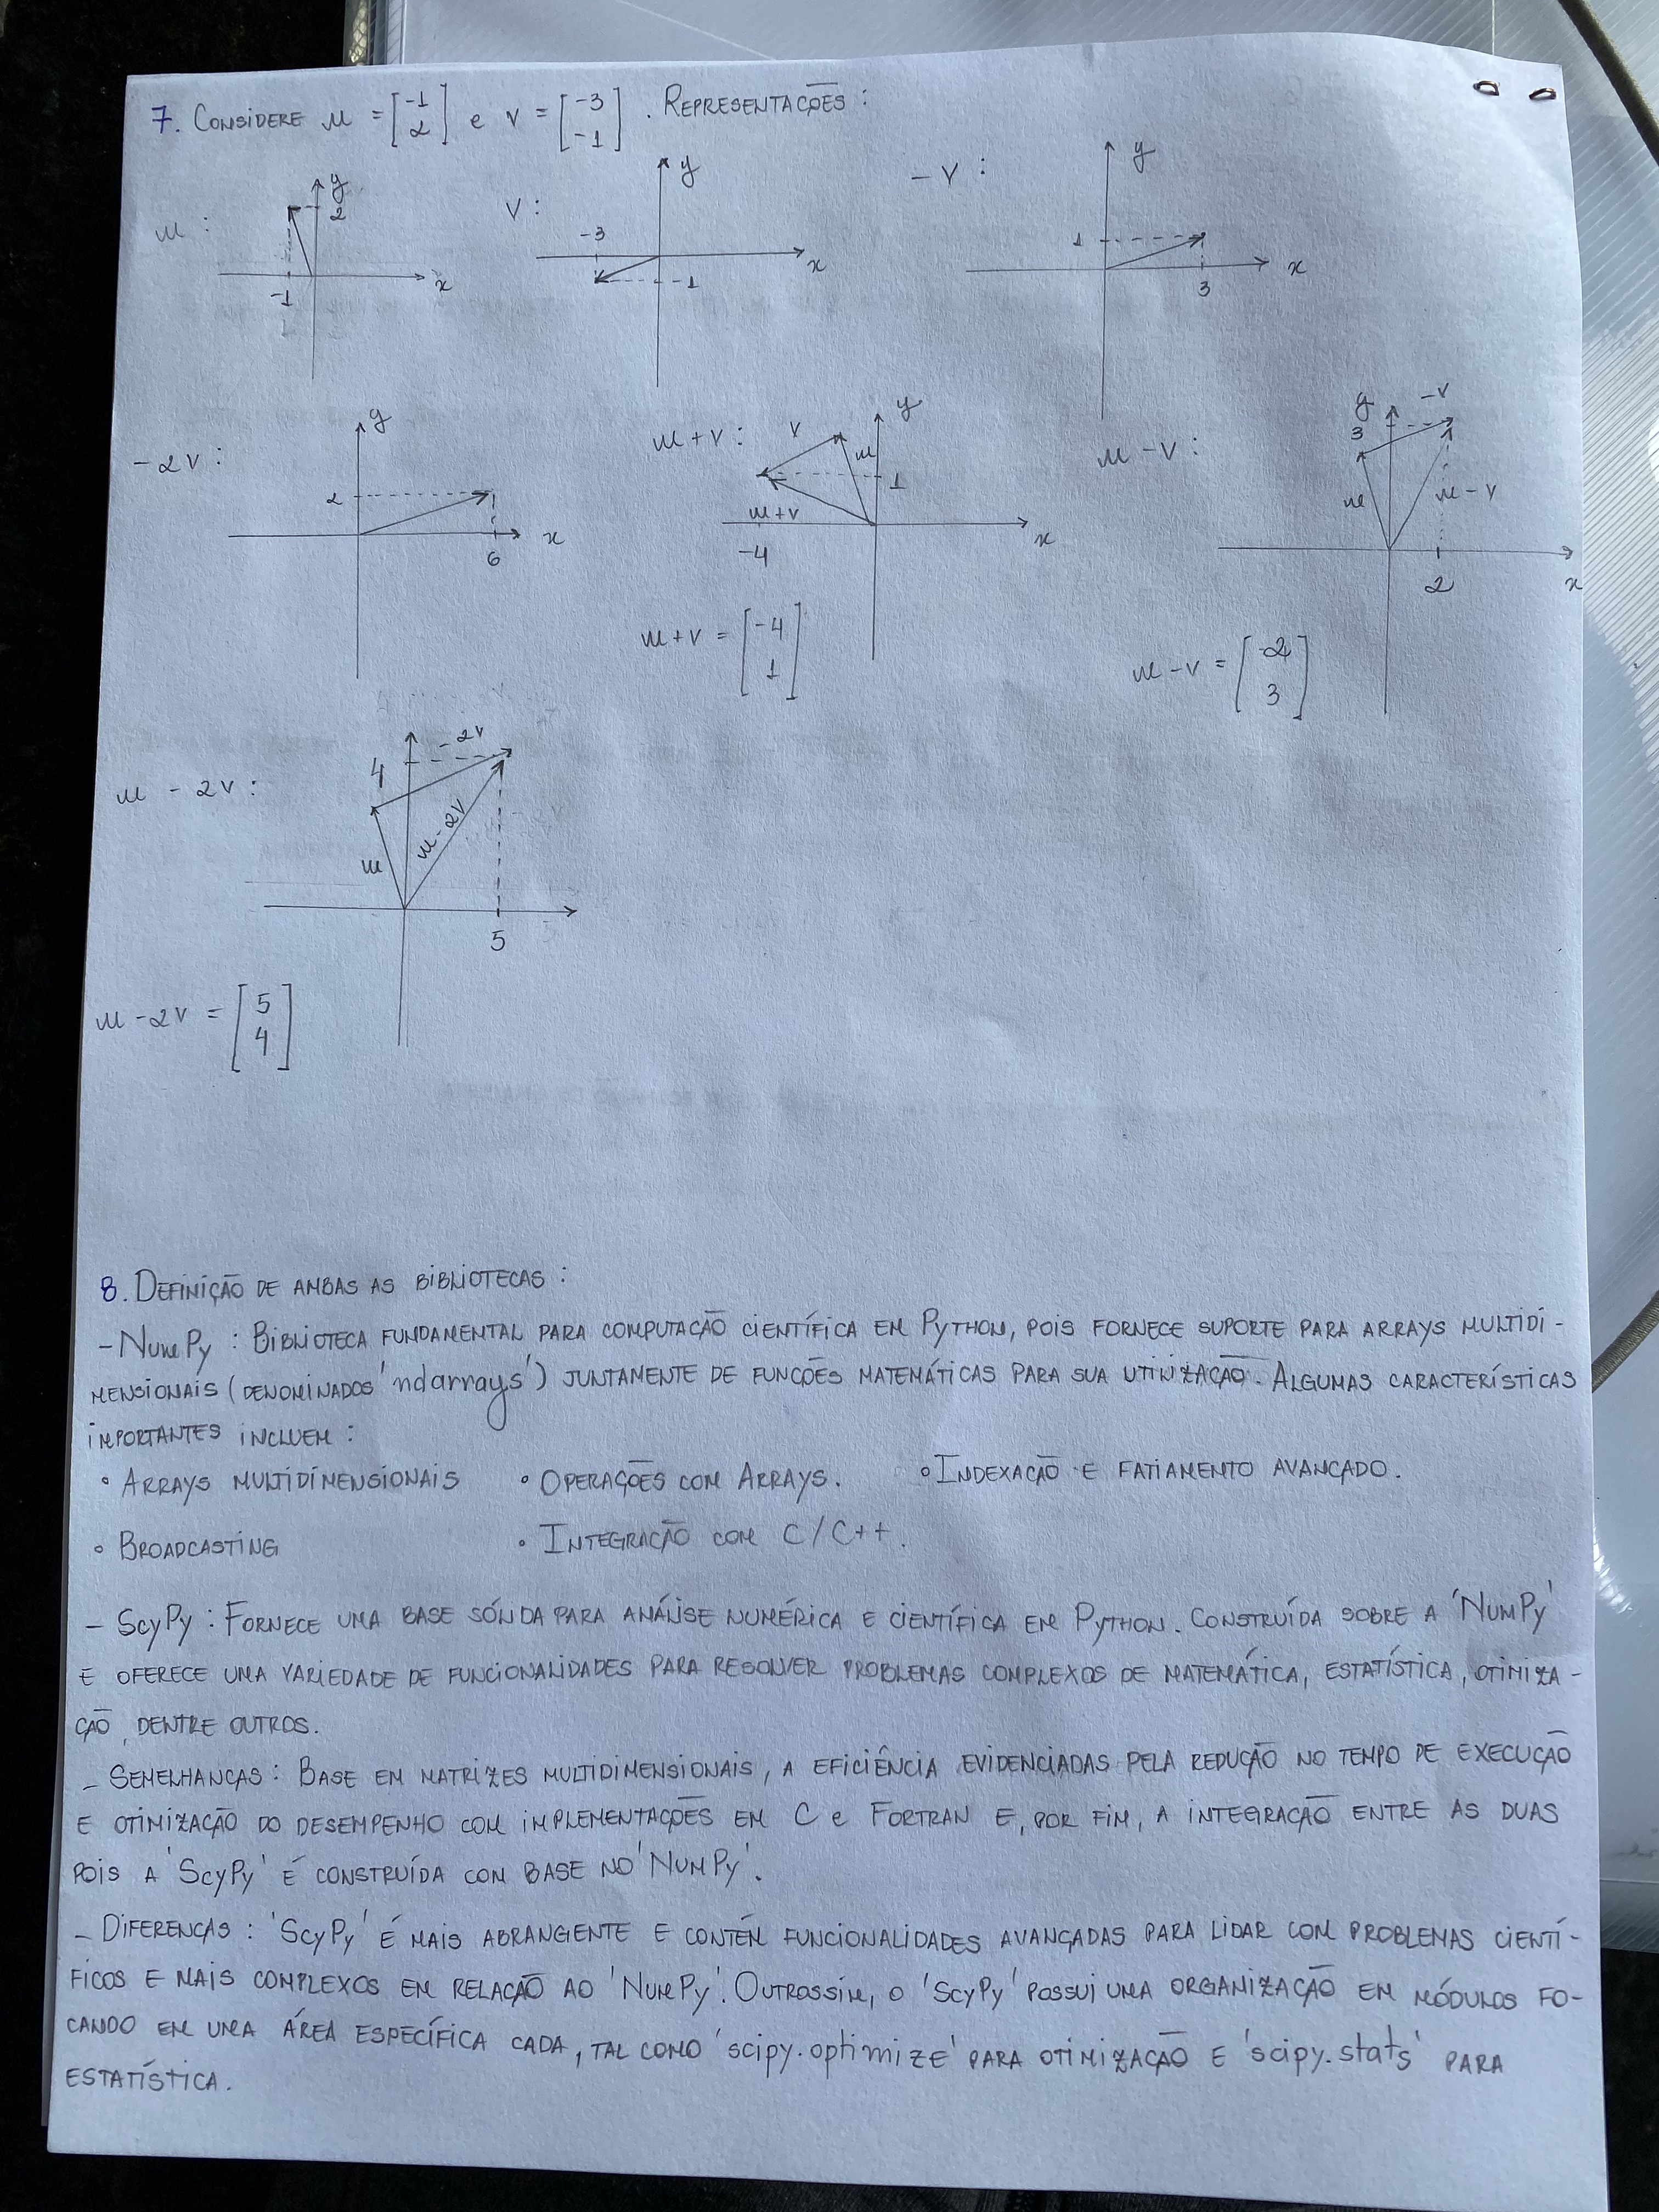 7. CONSIDERE u = [-1 2] e v = [-3 -1]. REPRESENTAÇÕES:
u: y 2 -1 x
v: y -3 -1 x
-v: y 1 3 x
-2v: y 2 6 x
u+v: v y u 1 u+v -4 x
u+v = [-4 1]
u-v: y -v 3 u u-v 2 x
u-v = [-2 3]
u - 2v: -2v 4 u u-2v 5
u-2v = [5 4]
8. DEFINIÇÃO DE AMBAS AS BIBLIOTECAS:
- NumPy: BIBLIOTECA FUNDAMENTAL PARA COMPUTAÇÃO CIENTÍFICA EM PYTHON, POIS FORNECE SUPORTE PARA ARRAYS MULTIDI-
MENSIONAIS (DENOMINADOS 'ndarrays') JUNTAMENTE DE FUNÇÕES MATEMÁTICAS PARA SUA UTILIZAÇÃO. ALGUMAS CARACTERÍSTICAS
IMPORTANTES INCLUEM:
• ARRAYS MULTIDIMENSIONAIS • OPERAÇÕES COM ARRAYS. • INDEXAÇÃO E FATIAMENTO AVANÇADO.
• BROADCASTING • INTEGRAÇÃO COM C/C++.
- ScyPy: FORNECE UMA BASE SÓLIDA PARA ANÁLISE NUMÉRICA E CIENTÍFICA EM PYTHON. CONSTRUÍDA SOBRE A 'NUMPy'
E OFERECE UMA VARIEDADE DE FUNCIONALIDADES PARA RESOLVER PROBLEMAS COMPLEXOS DE MATEMÁTICA, ESTATÍSTICA, OTIMIZA-
ÇÃO, DENTRE OUTROS.
- SEMELHANÇAS: BASE EM MATRIZES MULTIDIMENSIONAIS, A EFICIÊNCIA EVIDENCIADAS PELA REDUÇÃO NO TEMPO DE EXECUÇÃO
E OTIMIZAÇÃO DO DESEMPENHO COM IMPLEMENTAÇÕES EM C e FORTRAN E, POR FIM, A INTEGRAÇÃO ENTRE AS DUAS
POIS A 'ScyPy' É CONSTRUÍDA COM BASE NO 'NUMPy'.
- DIFERENÇAS: 'ScyPy' É MAIS ABRANGENTE E CONTÉM FUNCIONALIDADES AVANÇADAS PARA LIDAR COM PROBLEMAS CIENTÍ-
FICOS E MAIS COMPLEXOS EM RELAÇÃO AO 'NUMPy'. OUTROSSIM, O 'ScyPy' POSSUI UMA ORGANIZAÇÃO EM MÓDULOS FO-
CANDO EM UMA ÁREA ESPECÍFICA CADA, TAL COMO 'scipy.optimize' PARA OTIMIZAÇÃO E 'scipy.stats' PARA
ESTATÍSTICA.